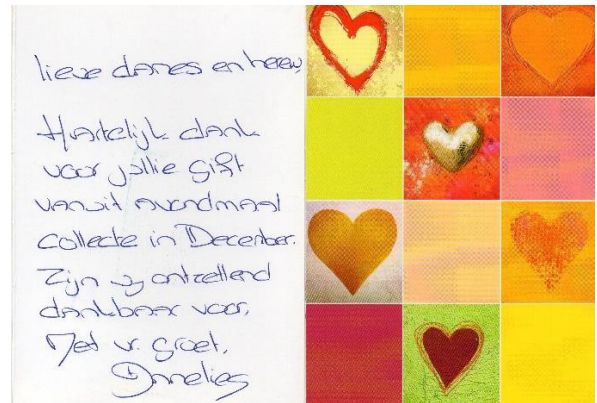 lieve dames en heren,
Hartelijk dank
voor jullie gift
vanuit avondmaal
collecte in December.
Zijn wij ontzettend
dankbaar voor.
Met vr. groet,
Annelies